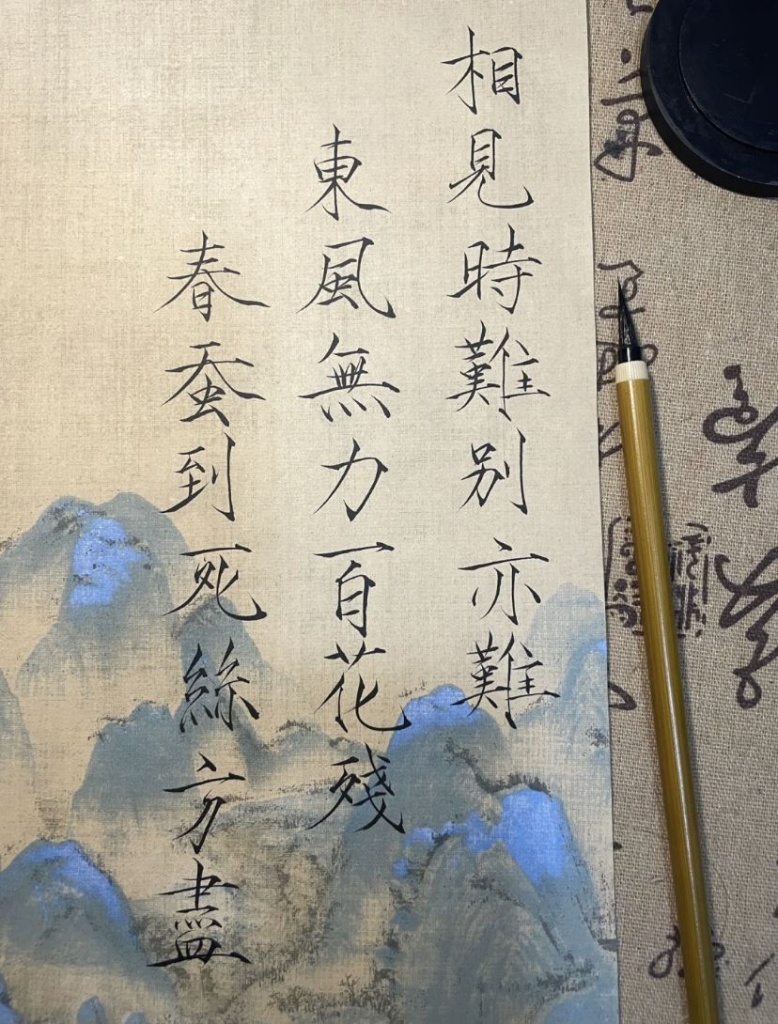 相見時難別亦難
東風無力百花殘
春蚕到死絲方盡